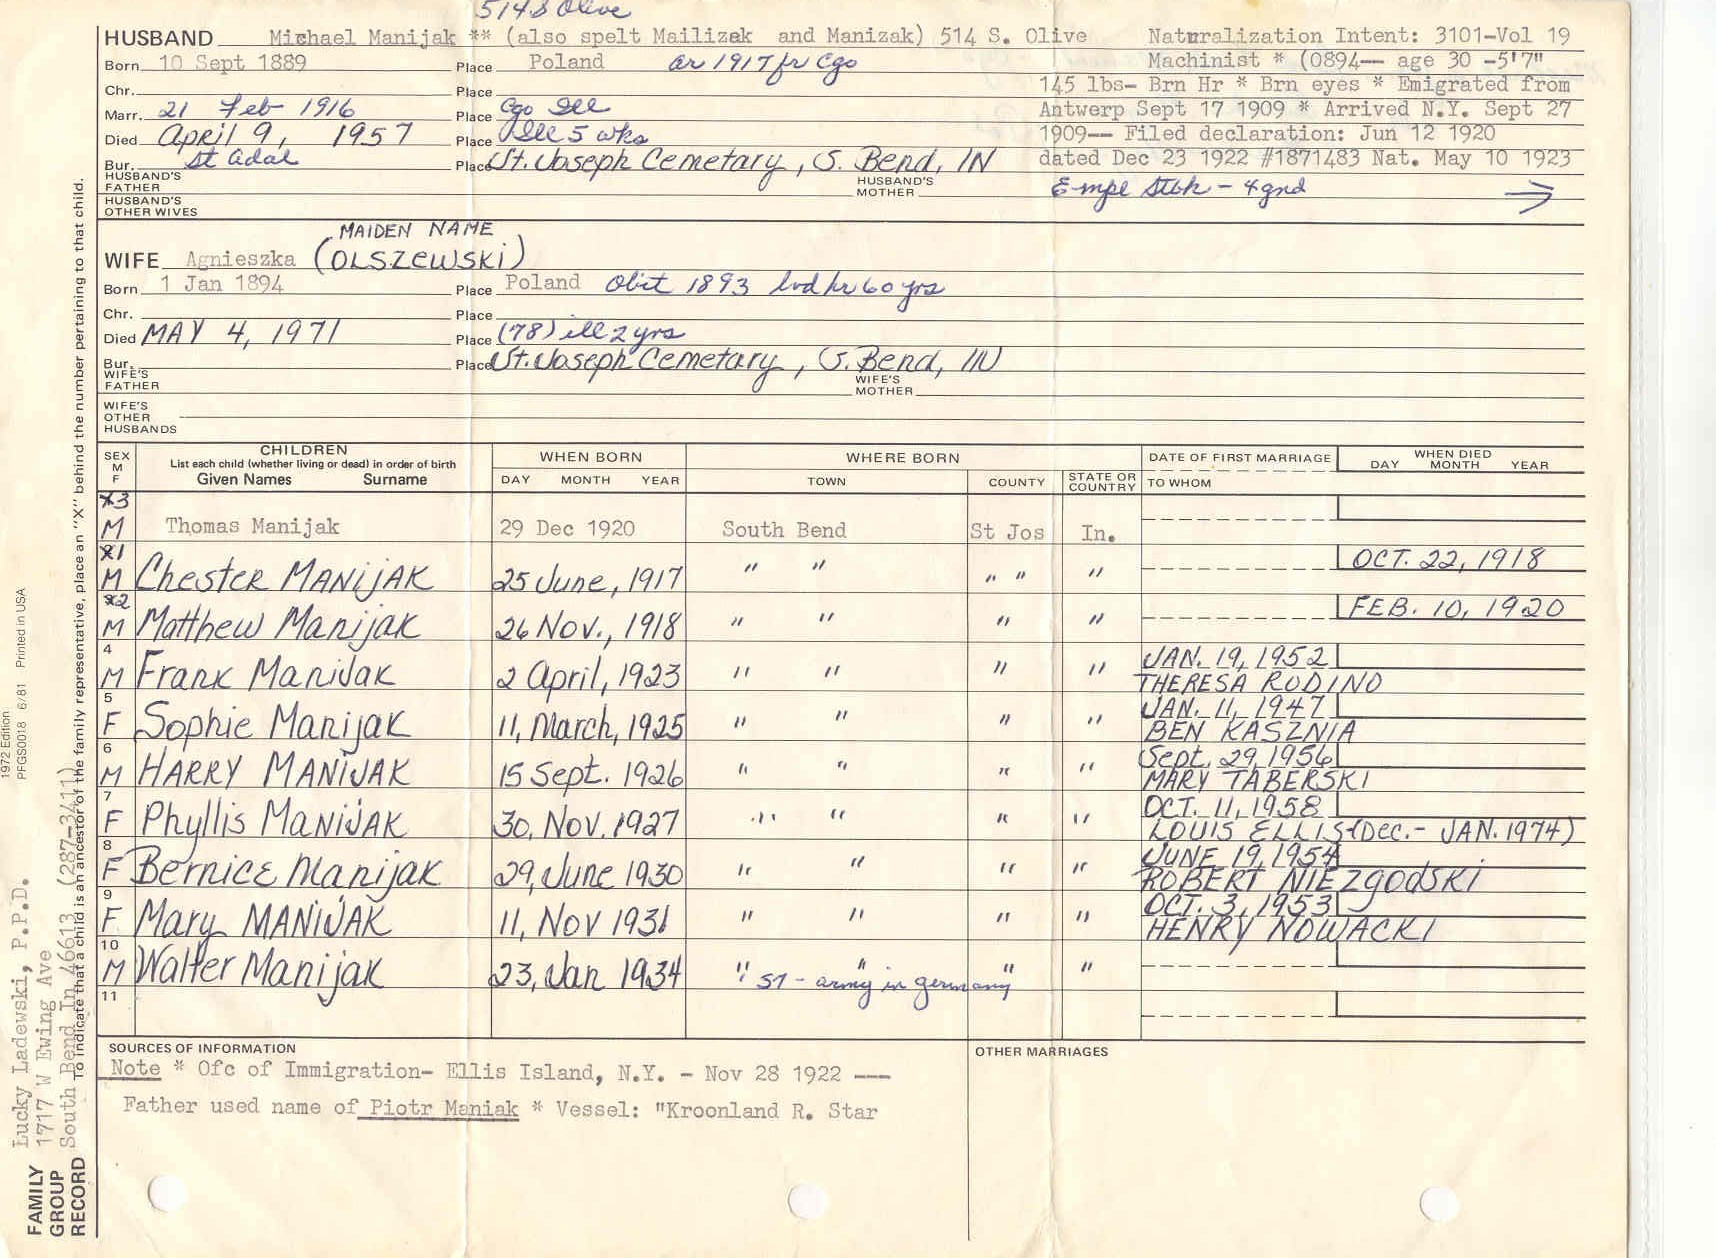 514 S Olive
HUSBAND Michael Manijak ** (also spelt Mailizak and Manizak) 514 S. Olive Naturalization Intent: 3101-Vol 19
Born 10 Sept 1889 Place Poland ar 1917 fr Cgo Machinist * (0894-- age 30 -5'7"
Chr. Place 145 lbs- Brn Hr * Brn eyes * Emigrated from
Marr. 21 Feb 1916 Place Cgo Ill Antwerp Sept 17 1909 * Arrived N.Y. Sept 27
Died April 9, 1957 Place Ill 5 wks 1909-- Filed declaration: Jun 12 1920
Bur. St Adal Place St. Joseph Cemetary, S. Bend, IN dated Dec 23 1922 #1871483 Nat. May 10 1923
HUSBAND'S FATHER HUSBAND'S MOTHER Empl Stbk - 4 gnd →
HUSBAND'S OTHER WIVES
MAIDEN NAME
WIFE Agnieszka (OLSZEWSKi)
Born 1 Jan 1894 Place Poland Obit 1893 lvd hr 60 yrs
Chr. Place
Died MAY 4, 1971 Place (78) ill 2 yrs
Bur. Place St. Joseph Cemetary, S. Bend, IN
WIFE'S FATHER WIFE'S MOTHER
WIFE'S OTHER HUSBANDS
SEX M F CHILDREN List each child (whether living or dead) in order of birth Given Names Surname WHEN BORN DAY MONTH YEAR WHERE BORN TOWN COUNTY STATE OR COUNTRY DATE OF FIRST MARRIAGE TO WHOM WHEN DIED DAY MONTH YEAR
3
M Thomas Manijak 29 Dec 1920 South Bend St Jos In.
1 OCT. 22, 1918
M Chester MANiJAK 25 June, 1917 " " " " "
2 FEB. 10, 1920
M Matthew Manijak 26 Nov., 1918 " " " "
4 JAN. 19, 1952
M Frank Manijak 2 April, 1923 " " " " THERESA RODINO
5 JAN. 11, 1947
F Sophie Manijak 11, March, 1925 " " " " BEN KASZNIA
6 Sept. 29, 1956
M HARRY MANiJAK 15 Sept. 1926 " " " " MARY TABERSKI
7 OCT. 11, 1958
F Phyllis MANiJAK 30, Nov. 1927 " " " " LOUIS ELLIS (Dec.- JAN. 1974)
8 JUNE 19, 1954
F Bernice Manijak 29, June 1930 " " " " ROBERT NIEZgODSKi
9 OCT. 3, 1953
F Mary MANiJAK 11, Nov 1931 " " " " HENRY NOWACKI
10
M Walter Manijak 23, Jan 1934 " " " "
57 - army in germany
11
SOURCES OF INFORMATION OTHER MARRIAGES
Note * Ofc of Immigration- Ellis Island, N.Y. - Nov 28 1922 ---
Father used name of Piotr Maniak * Vessel: "Kroonland R. Star
1972 Edition
PFGS0018 6/81 Printed in USA
Lucky Ladewski, P.P.D.
1717 W Ewing Ave
South Bend In 46613 (287-3411)
To indicate that a child is an ancestor of the family representative, place an "X" behind the number pertaining to that child.
FAMILY
GROUP
RECORD